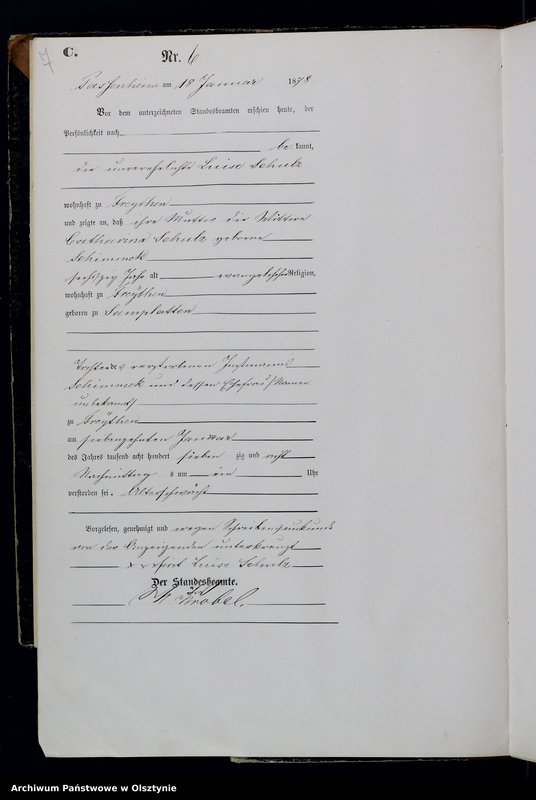 C.
Nr. 6
Passenheim am 18 Januar 1878
Vor dem unterzeichneten Standesbeamten erschien heute, der
Persönlichkeit nach
be kannt,
die unverehelichte Luise Schulz
wohnhaft zu Freythen
und zeigte an, daß ihre Mutter die Wittwe
Catharina Schulz geborene
Schimmek
sechszig Jahr alt evangelischer Religion,
wohnhaft zu Freythen
geboren zu Samplatten
Tochter des verstorbenen Instmanns
Schimmek und dessen Ehefrau (Namen
unbekannt)
zu Freythen
am siebenzehnten Januar
des Jahres tausend acht hundert sieben zig und acht
Nachmittag s um ein Uhr
verstorben sei. Altersschwäche
Vorgelesen, genehmigt und wegen Schreibensunkunde
von der Anzeigenden unterkreuzt
x x x Luise Schulz
Der Standesbeamte.
Wrobel.
Archiwum Państwowe w Olsztynie